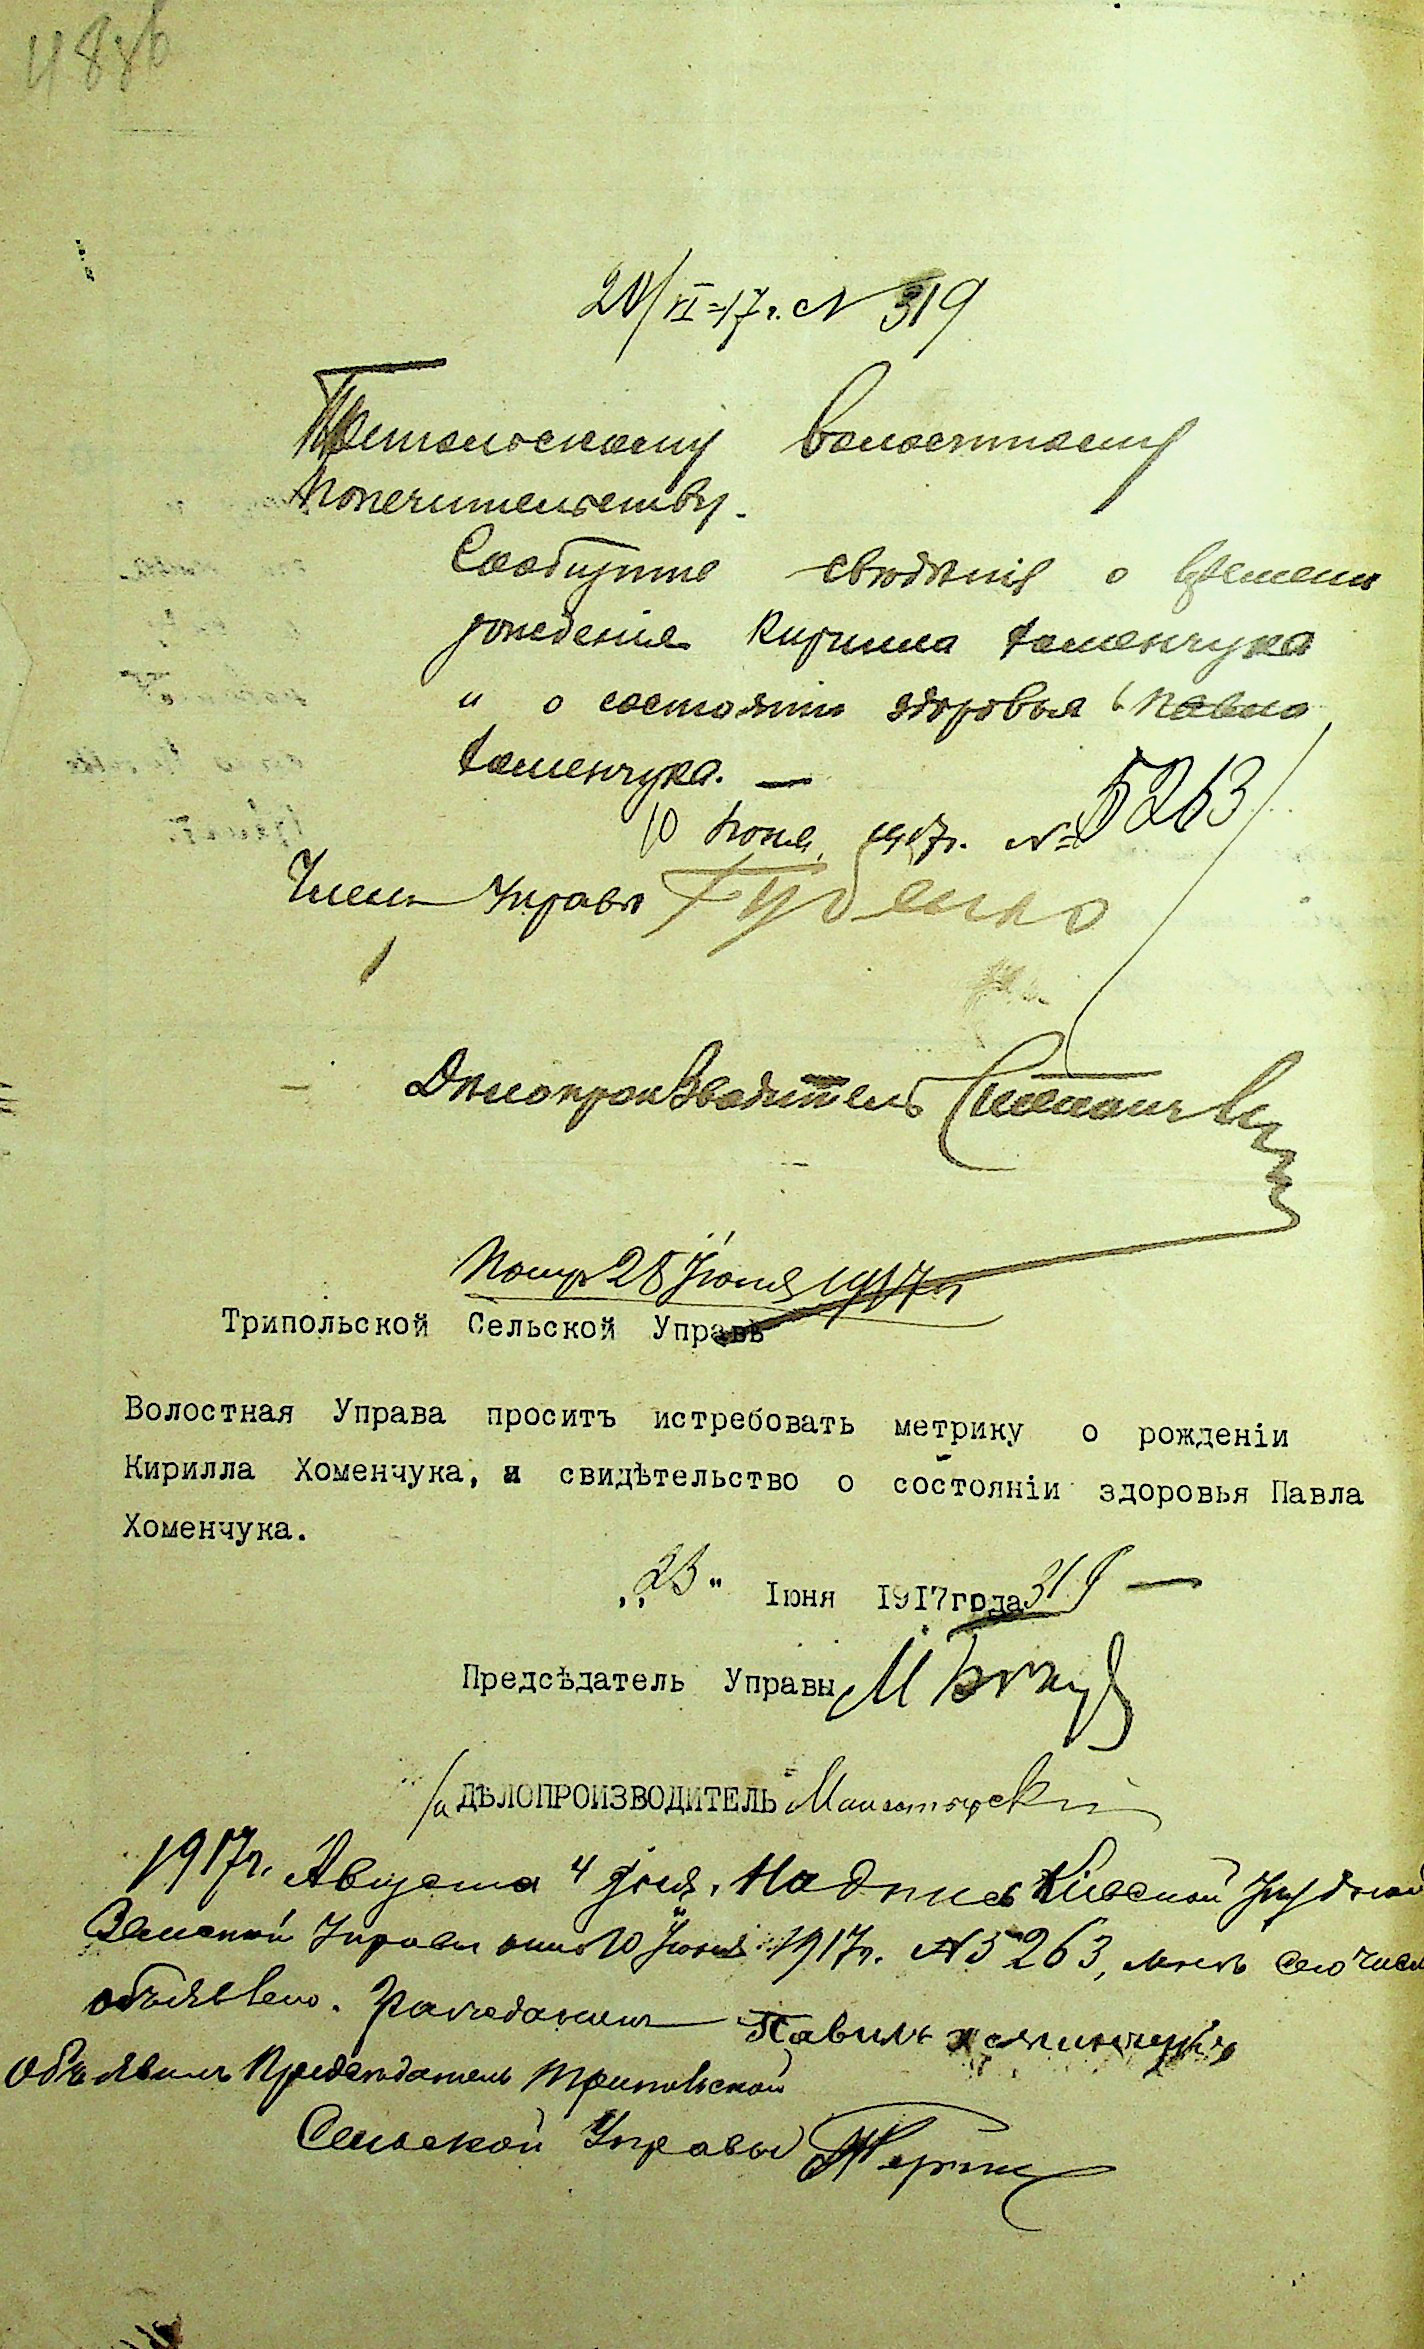 20/VI-17 г. № 319
Трипольскому Волостному
Попечительству.
Сообщите свѣдѣнія о времени
рожденія Кирилла Хоменчука
и о состояніи здоровья Павла
Хоменчука. —
10 Іюня 1917 г. № 5263
Членъ Управы Губенко
Дѣлопроизводитель
Получ 28 Іюня 1917 г
Трипольской Сельской Управѣ
Волостная Управа проситъ истребовать метрику о рожденіи
Кирилла Хоменчука, и свидѣтельство о состояніи здоровья Павла
Хоменчука.
„23" Іюня 1917 года 319 —
Предсѣдатель Управы М
ДѢЛОПРОИЗВОДИТЕЛЬ
1917 г. Августа 4 дня. Надпись Кіевской Уѣздной
Земской Управы отъ 10 Іюня 1917 г. № 5263, мнѣ сего числа
объявлено.
Павилъ хоминчукъ
Объявилъ Предсѣдатель Трипольской
Сельской Управы